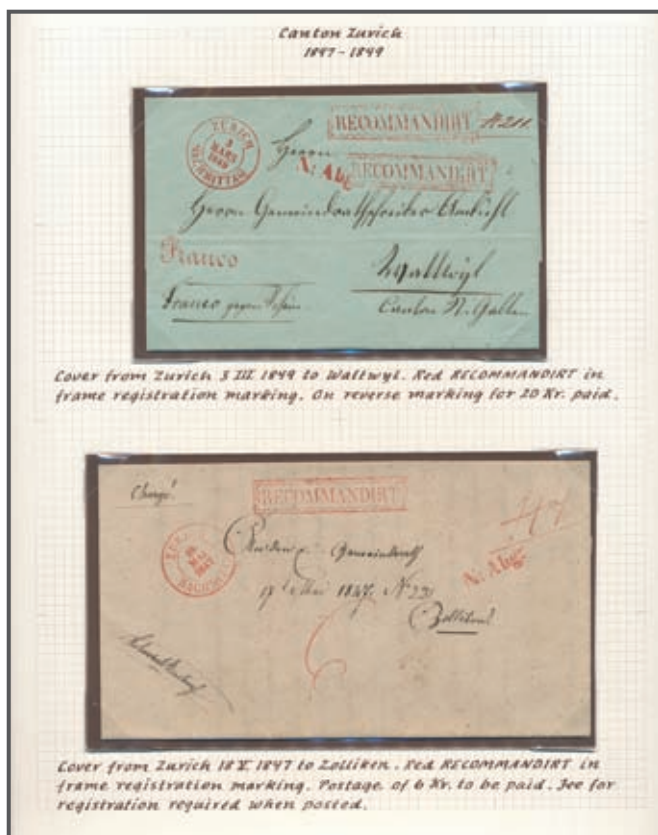 Canton Zurich
1847-1849
RECOMMANDIRT № 211.
ZÜRICH
3
MARS
1849
NACHMITTAG
Herrn
N: Abg RECOMMANDIRT
Herrn Gemeindrathschreiber
Franco
Wattwyl
Franco gegen Schein
Canton St. Gallen
Cover from Zurich 3 III 1849 to Wattwyl. Red RECOMMANDIRT in
frame registration marking. On reverse marking for 20 Kr. paid.
Chargé!
RECOMMANDIRT
N: Abg:
Gemeindrath
17 Mai 1847.
Zollikon
6
Cover from Zurich 18 V 1847 to Zolliken. Red RECOMMANDIRT in
frame registration marking. Postage of 6 Kr. to be paid. Fee for
registration required when posted.